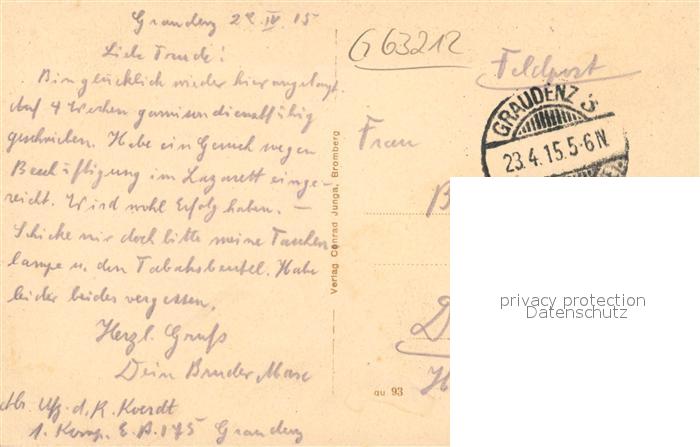 Graudenz 22 IV 15
Liebe Trude!
Bin glücklich wieder hier angelangt.
Auf 4 Wochen garnisondienstfähig
geschrieben. Habe ein Gesuch wegen
Beschäftigung im Lazarett einge-
reicht. Wird wohl Erfolg haben. –
Schicke mir doch bitte meine Taschen
lampe u. den Tabaksbeutel. Habe
leider beides vergessen.
Herzl. Gruß
Dein Bruder
Abs. Utfz. d. R.
1. Komp. E. B. 175 Graudenz
Verlag Conrad Junga, Bromberg
G 63212
Feldpost
GRAUDENZ
23.4.15.5-6N.
Frau
qu 93
privacy protection
Datenschutz